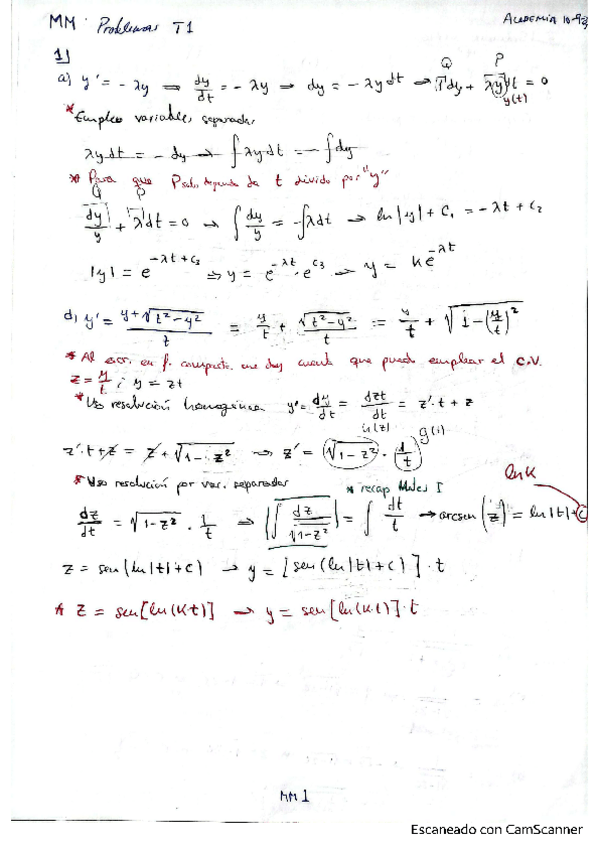 MM Problemas T1
ACADEMIA 10
1)
a) y' = -λy ⇒ dy/dt = -λy → dy = -λy dt → 1 dy + λy dt = 0
Q P y(t)
* Empleo variables separadas
λy dt = -dy → ∫λy dt = -∫dy
* Para que P solo dependa de t divido por "y"
Q P
dy/y + λdt = 0 → ∫dy/y = -∫λdt → ln|y| + C₁ = -λt + C₂
|y| = e^(-λt + C₃) ⇒ y = e^(-λt) · e^(C₃) → y = Ke^(-λt)
d) y' = (y + √(t² - y²))/t = y/t + √(t² - y²)/t = y/t + √(1 - (y/t)²)
* Al escr. en f. compacta me doy cuenta que puedo emplear el C.V.
z = y/t ; y = zt
* Uso resolución homogénea y' = dy/dt = dzt/dt = z'·t + z
z'·t + z = z + √(1 - z²) → z' = √(1 - z²) · (1/t) g(t)
* Uso resolución por var. separadas * recap Mates I
ln K
dz/dt = √(1 - z²) · 1/t ⇒ ∫ dz/√(1 - z²) = ∫ dt/t → arcsen(z) = ln|t| + C
z = sen(ln|t| + C) → y = [sen(ln|t| + C)] · t
* z = sen[ln(Kt)] → y = sen[ln(Kt)] · t
MM 1
Escaneado con CamScanner